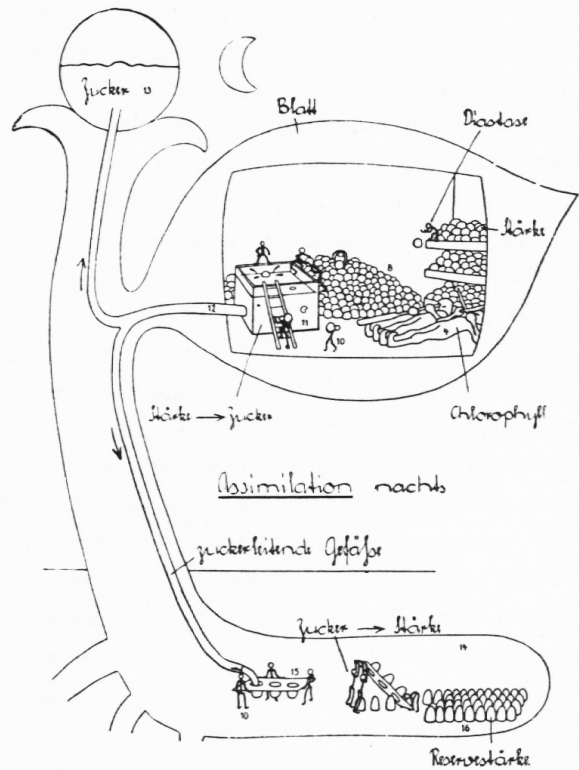 Zucker 13
Blatt
Diastase
Stärke
8
12
11
10
9
Stärke → Zucker
Chlorophyll
Assimilation nachts
zuckerleitende Gefäße
Zucker → Stärke
14
15
10
16
Reservestärke